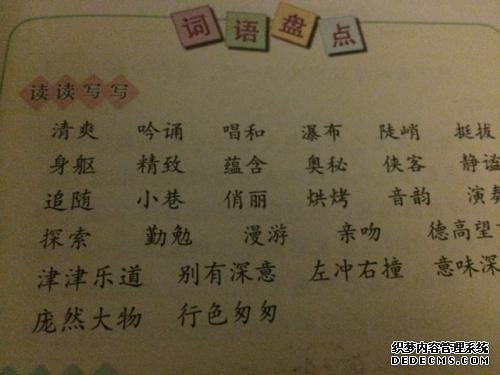 词语盘点
读读写写
清爽 吟诵 唱和 瀑布 陡峭 挺拔
身躯 精致 蕴含 奥秘 侠客 静谧
追随 小巷 俏丽 烘烤 音韵 演奏
探索 勤勉 漫游 亲吻 德高望
津津乐道 别有深意 左冲右撞 意味深
庞然大物 行色匆匆
织梦内容管理系统
DEDECMS.COM